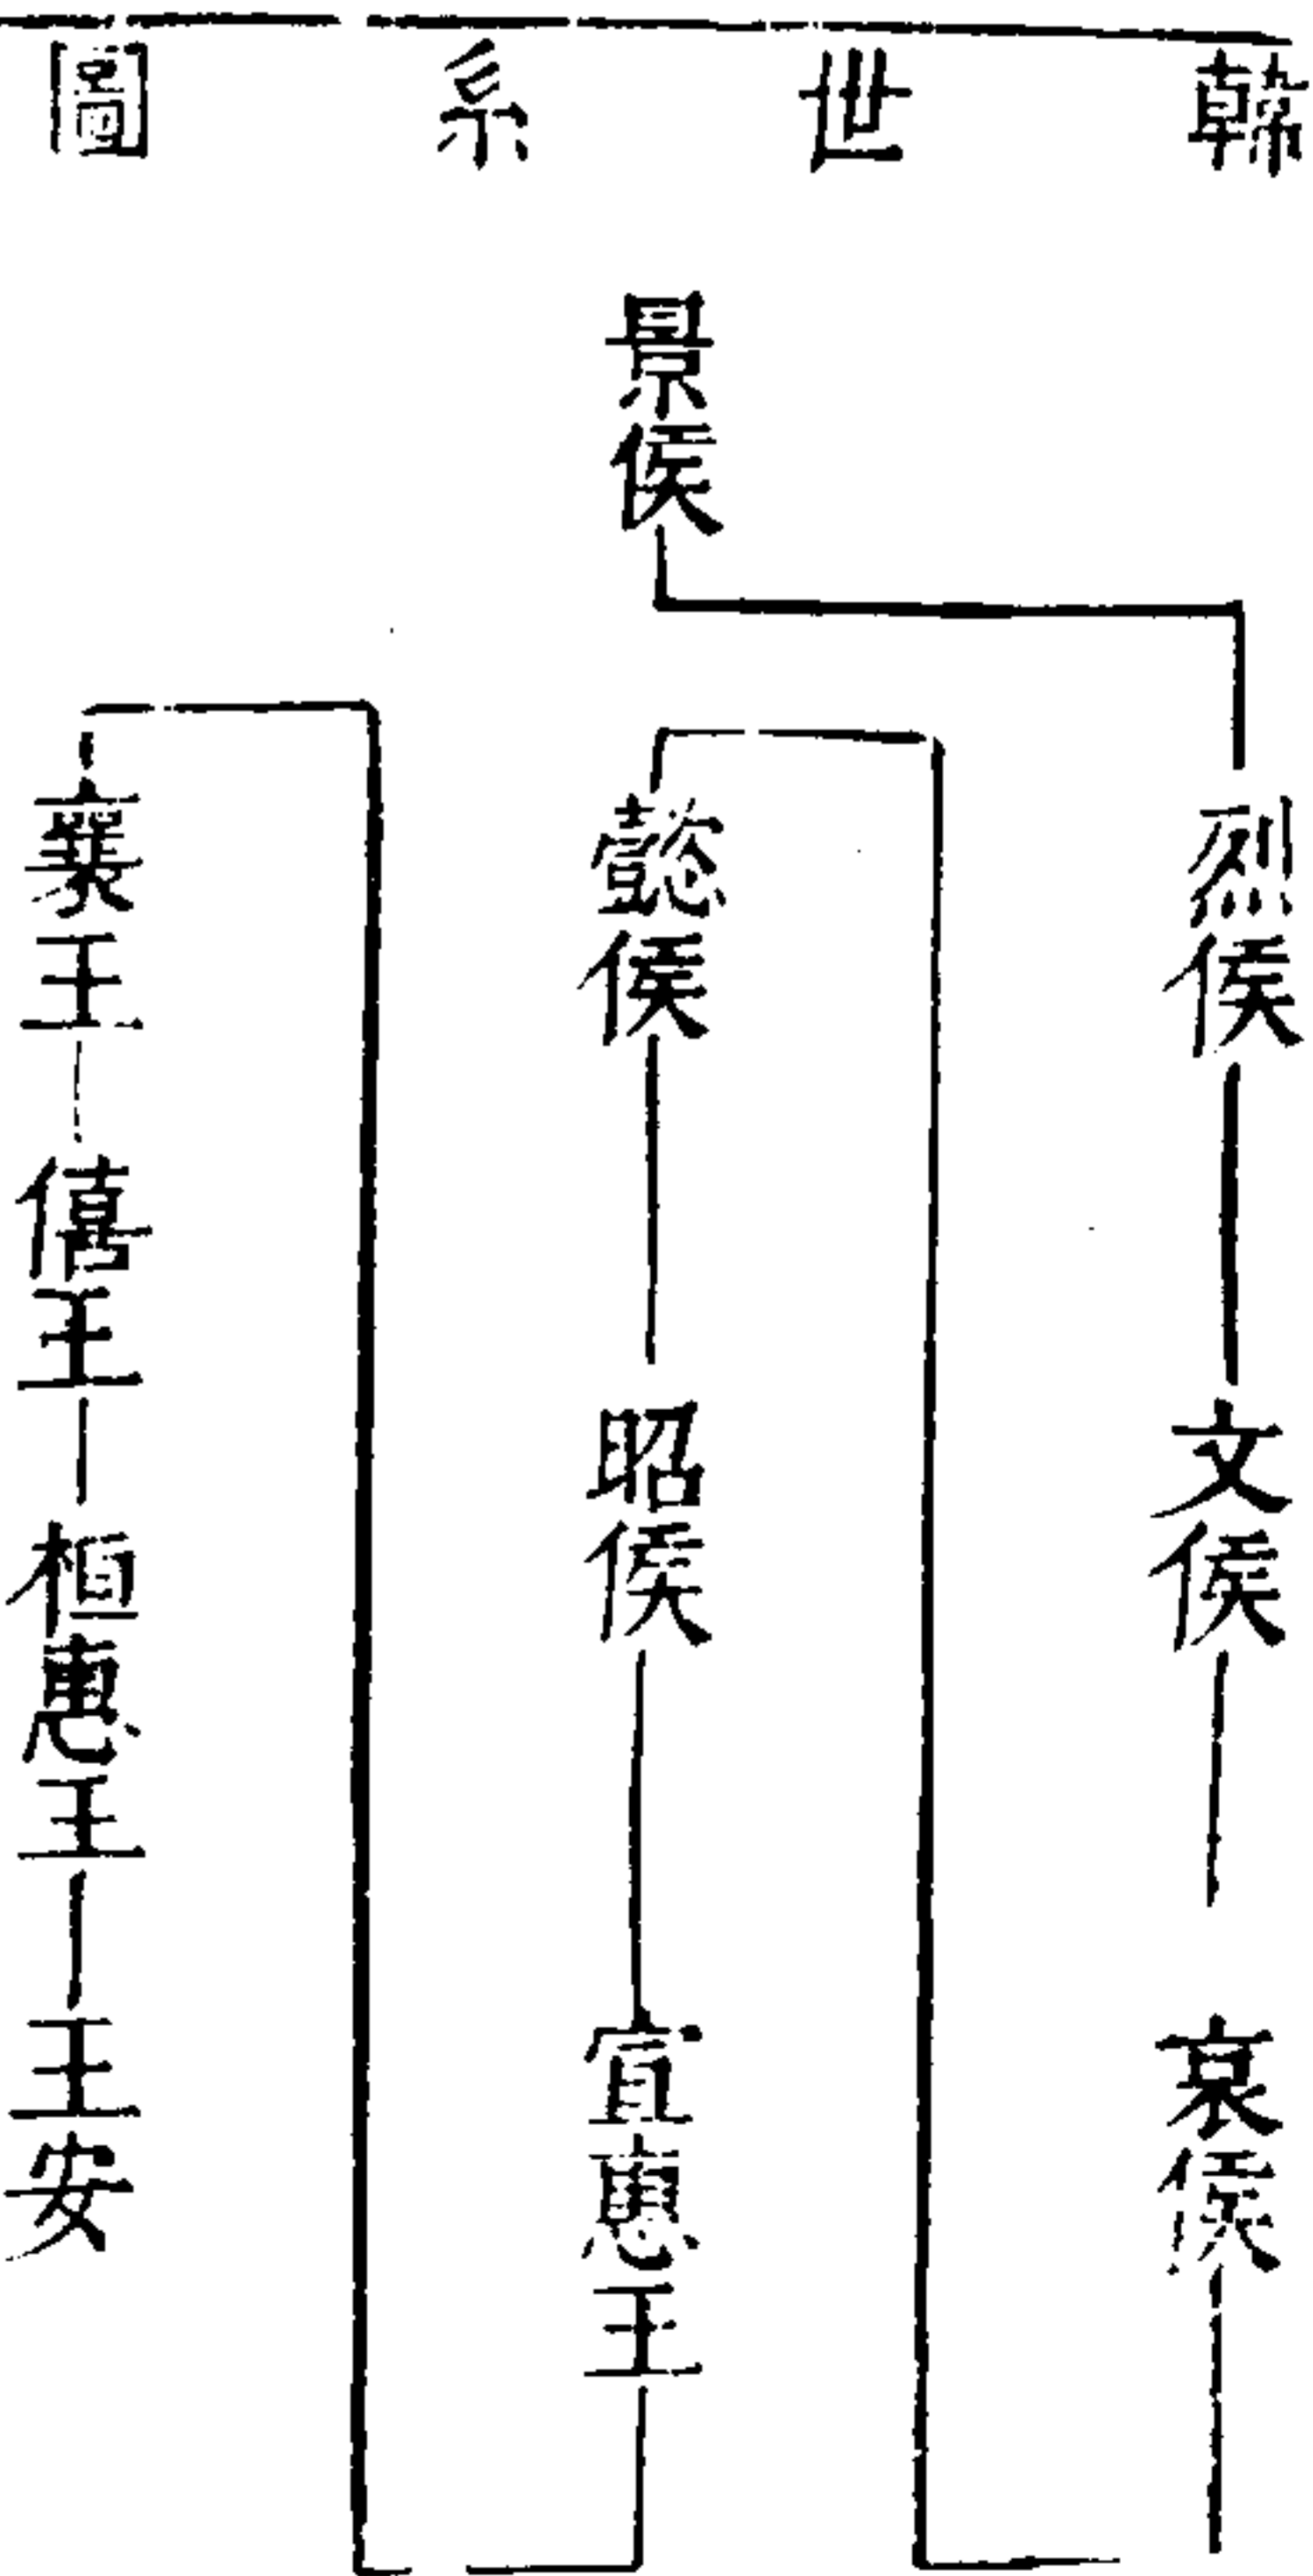 韓世系圖
景侯
烈侯
文侯
哀侯
懿侯
昭侯
宜惠王
襄王
僖王
桓惠王
王安